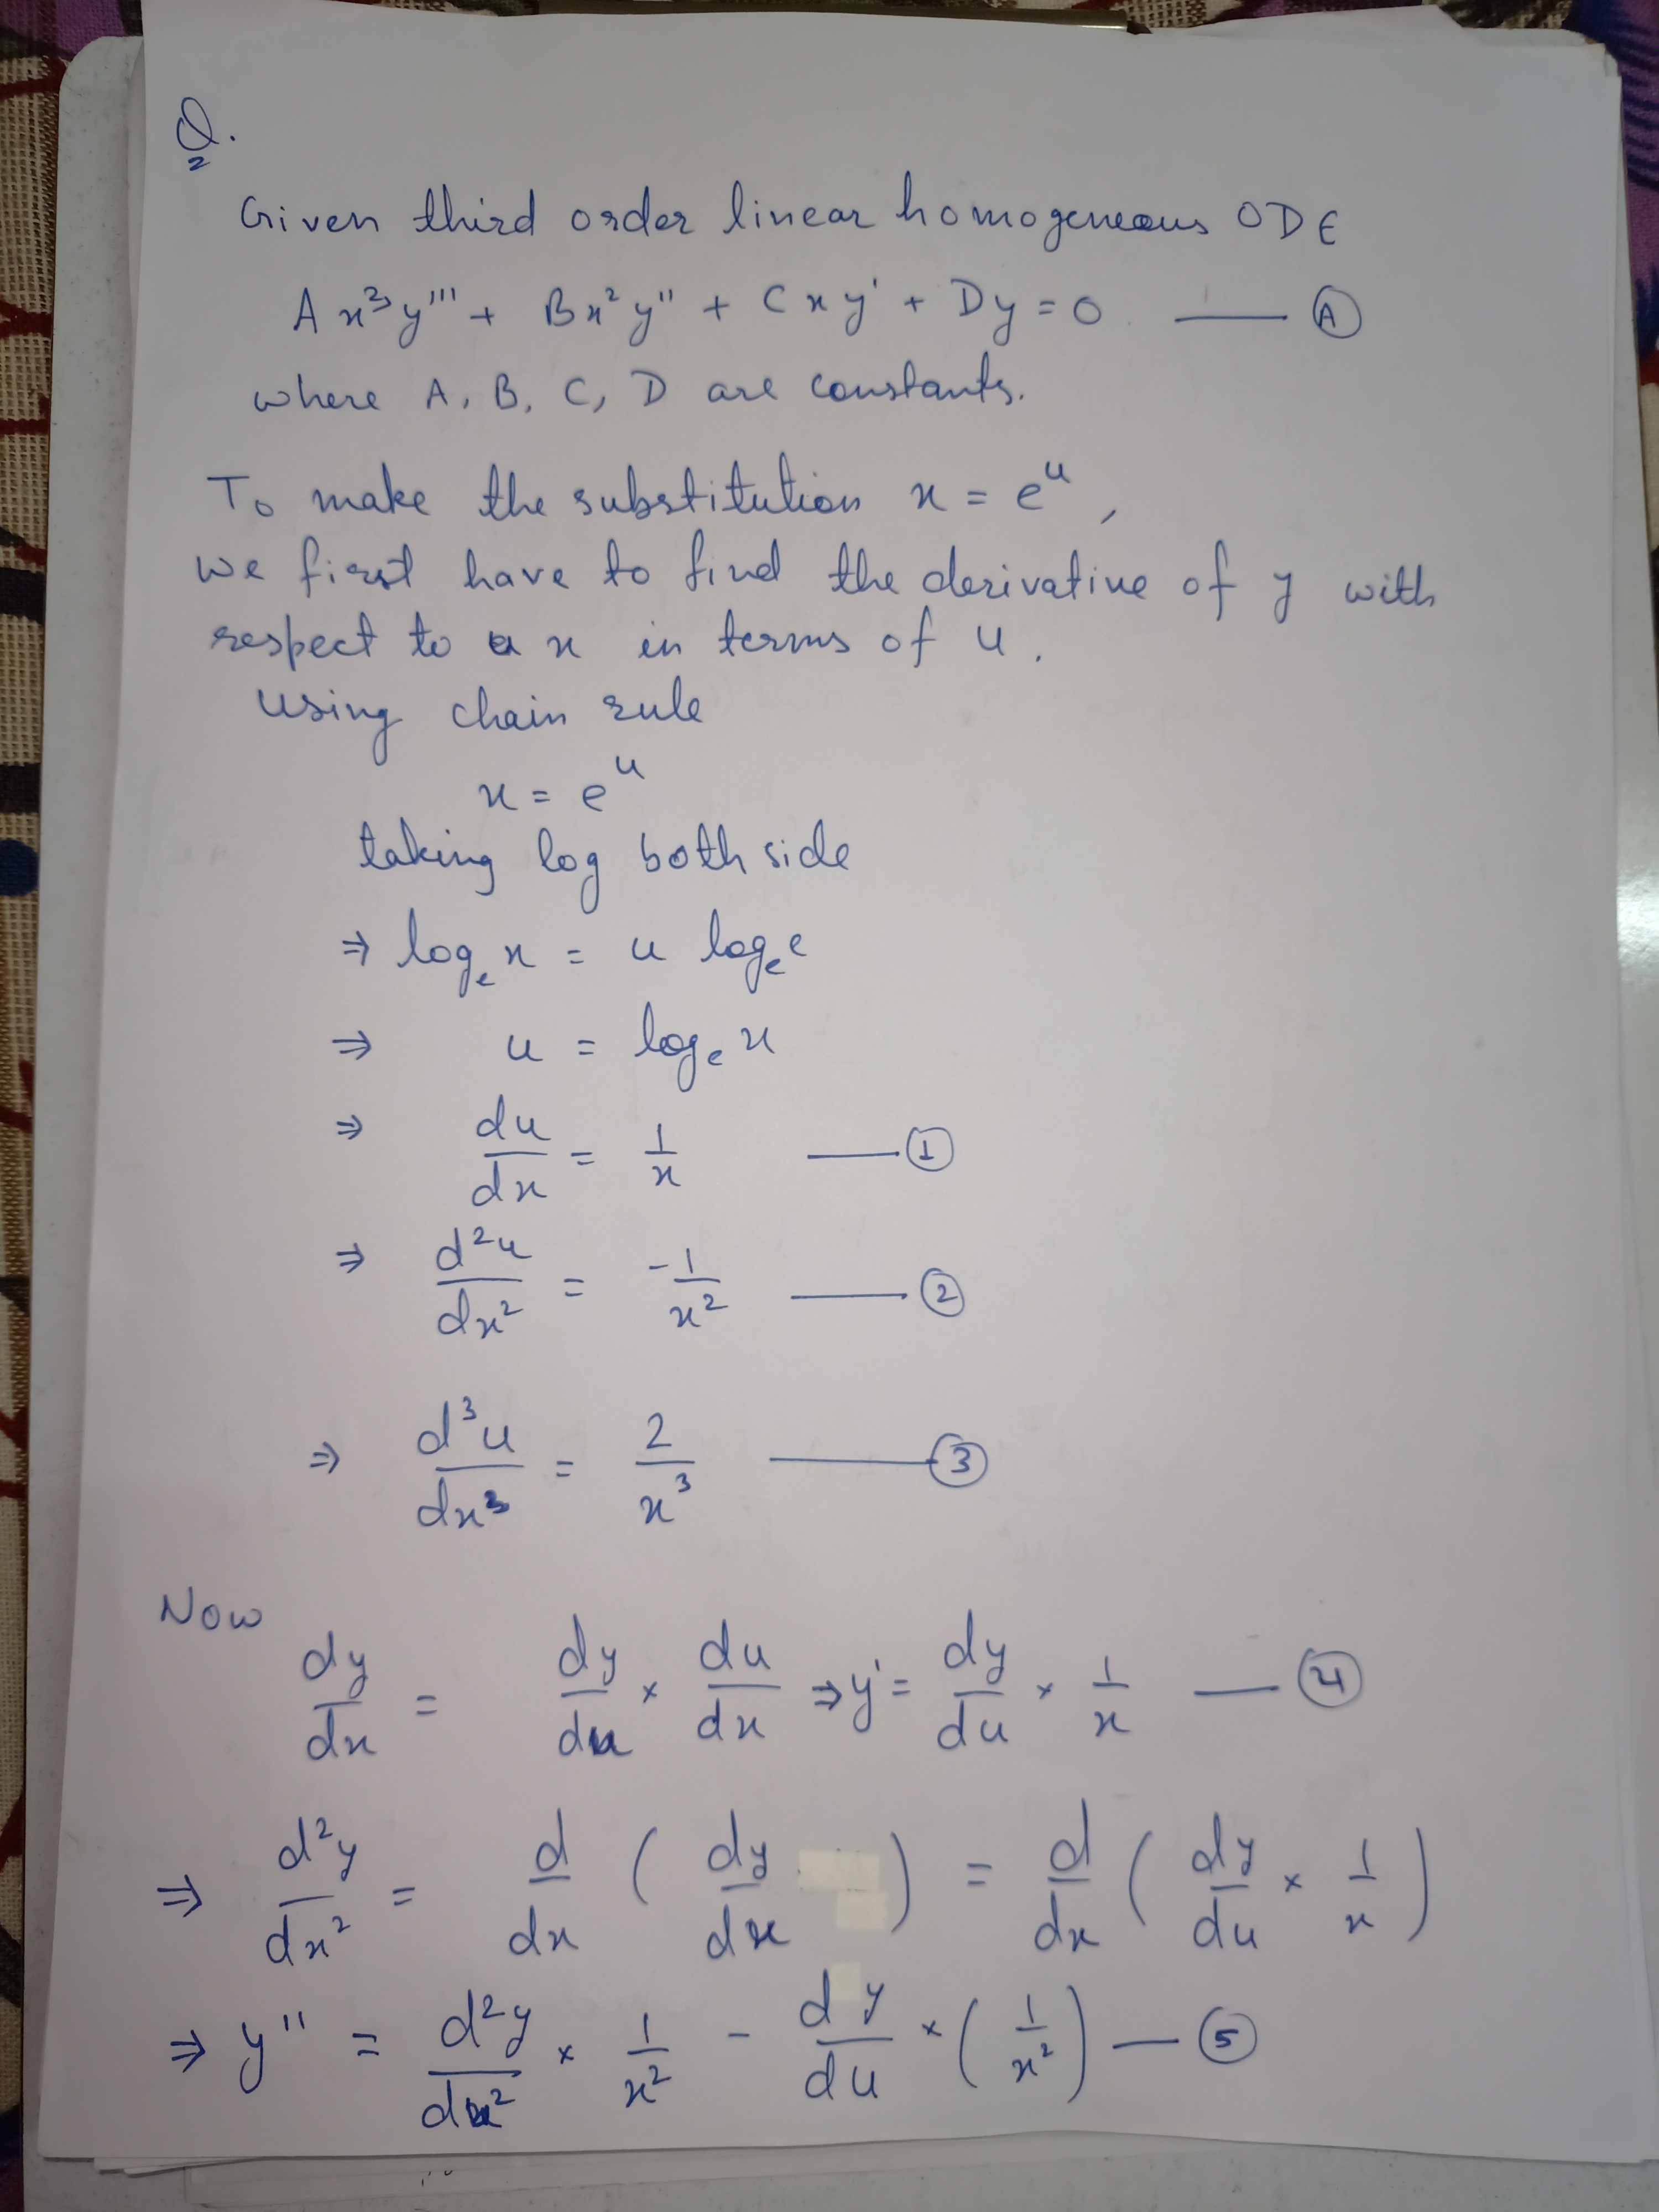 Q.
2
Given third order linear homogeneous ODE
A x³y''' + Bx²y'' + Cxy' + Dy = 0 —— Ⓐ
where A, B, C, D are constants.
To make the substitution x = e^u,
we first have to find the derivative of y with
respect to x in terms of u.
using chain rule
x = e^u
taking log both side
⇒ logₑ x = u logₑ e
⇒ u = logₑ x
⇒ du/dx = 1/x —— ①
⇒ d²u/dx² = -1/x² —— ②
⇒ d³u/dx³ = 2/x³ —— ③
Now
dy/dx = dy/du × du/dx ⇒ y' = dy/du × 1/x —— ④
⇒ d²y/dx² = d/dx ( dy/dx ) = d/dx ( dy/du × 1/x )
⇒ y'' = d²y/du² × 1/x² - dy/du × ( 1/x² ) —— ⑤